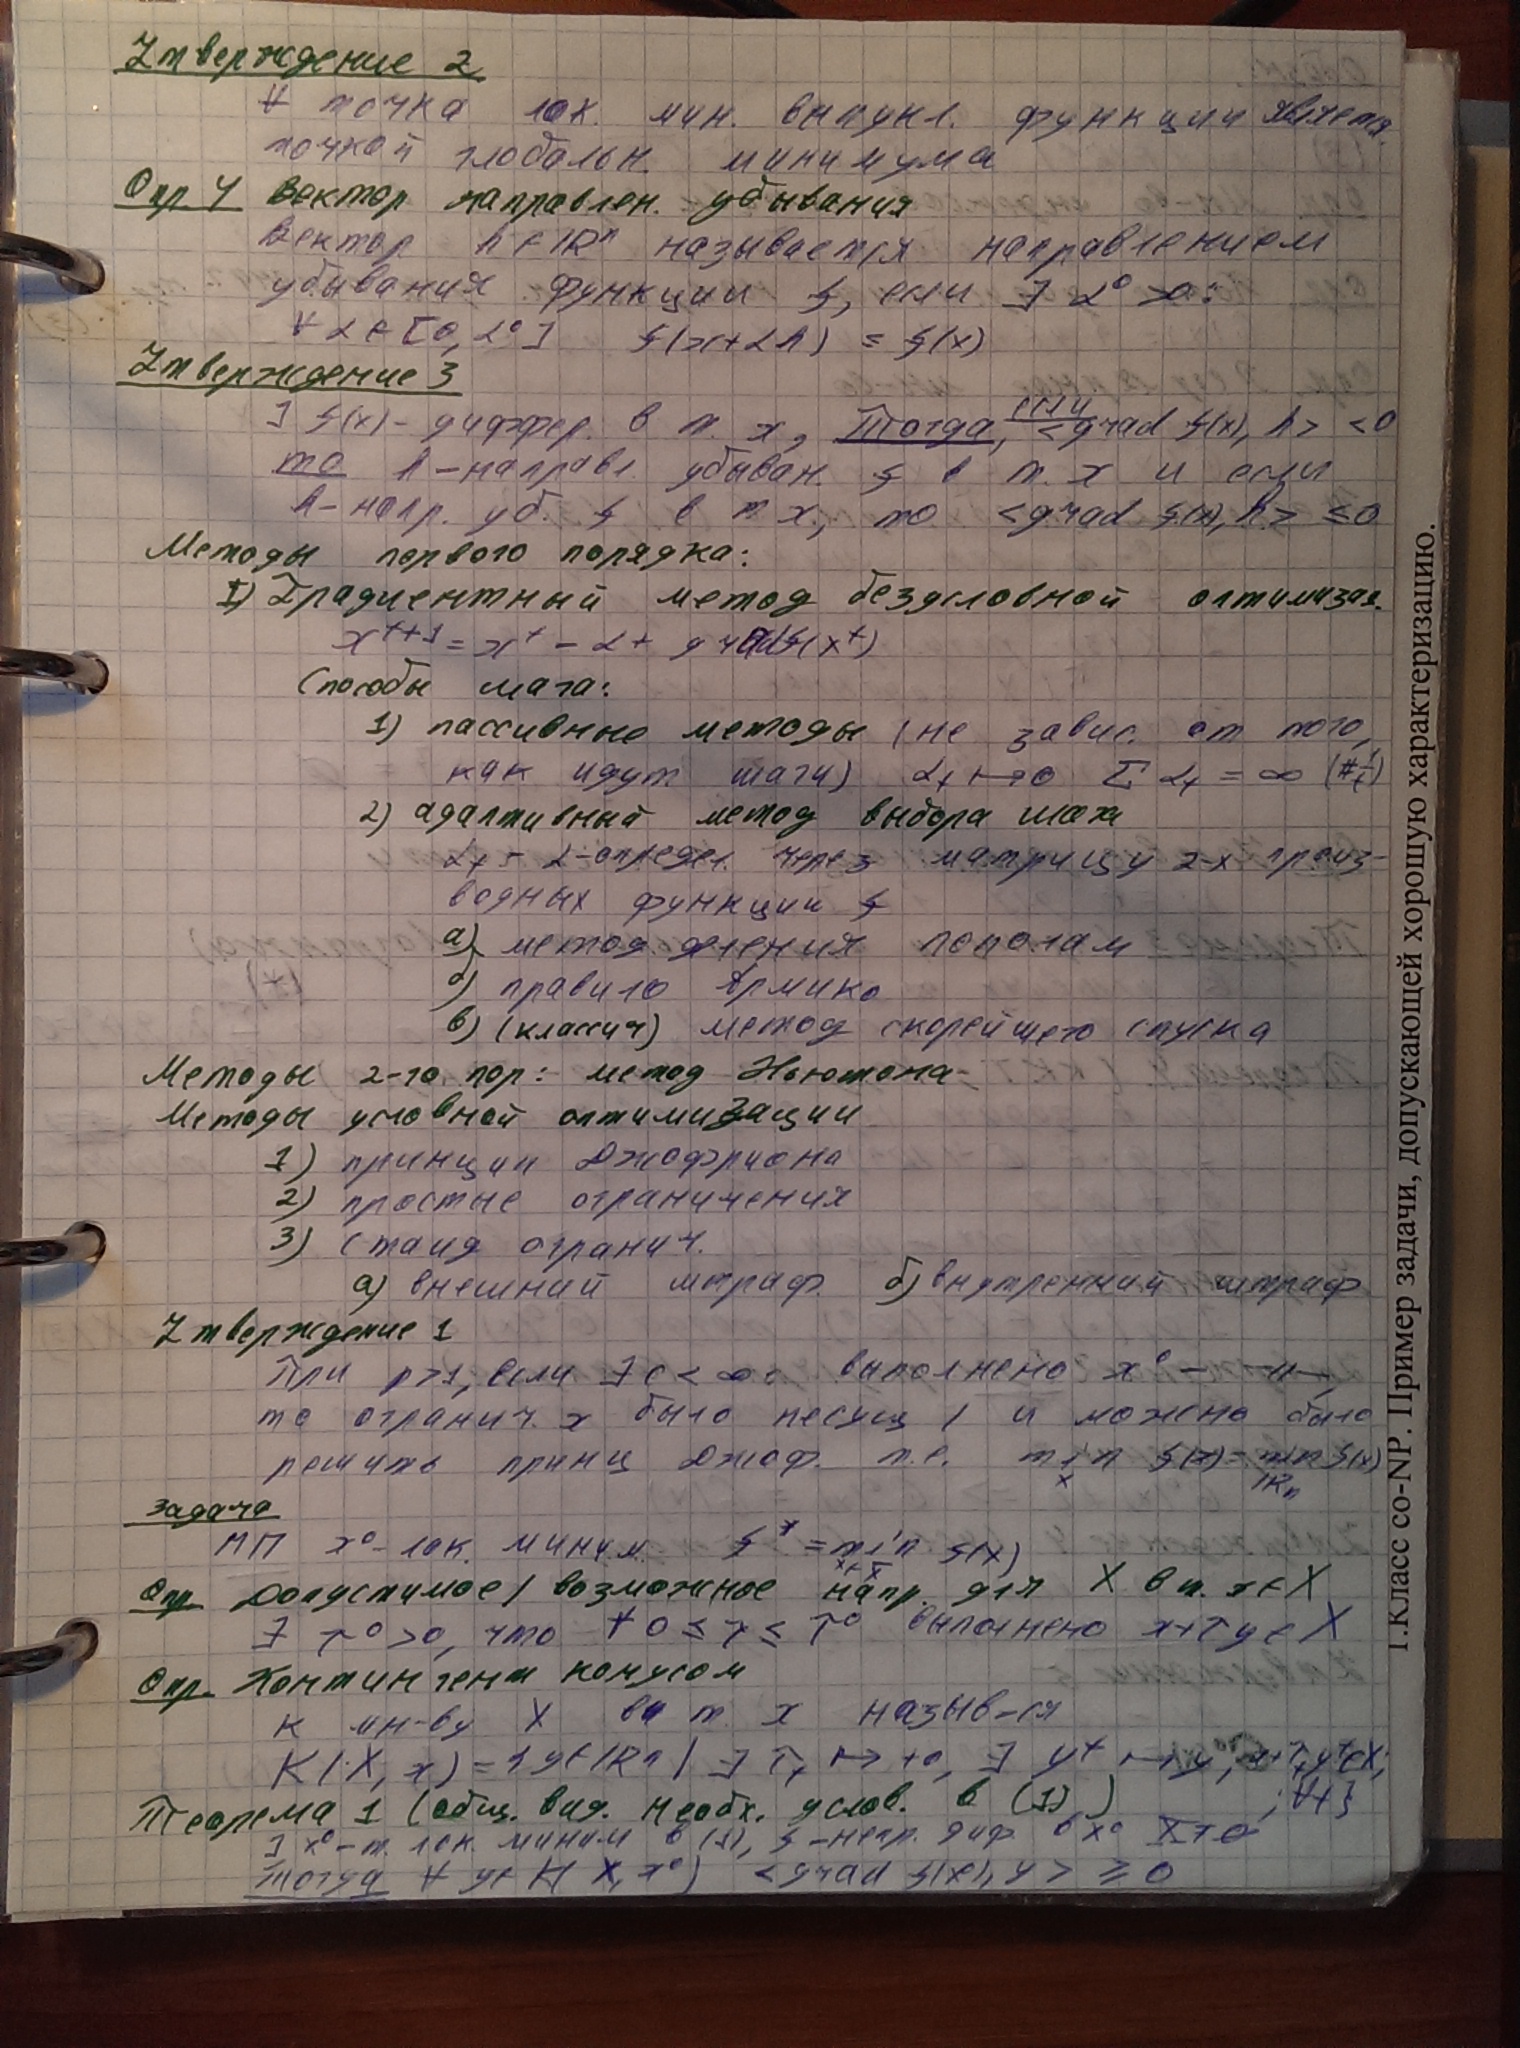 Утверждение 2
∀ точка лок. мин. выпукл. функции является
точкой глобальн. минимума
Опр 4 Вектор направлен. убывания
Вектор h ∈ IRⁿ называется направлением
убывания функции f, если ∃ α⁰ > 0:
∀ α ∈ [0, α⁰] f(x+αh) ≤ f(x)
Утверждение 3
∃ f(x) - диффер. в т. x, Тогда, если <grad f(x), h> < 0
то h - направл. убыван. f в т. x и если
h - напр. уб. f в т x, то <grad f(x), h> ≤ 0
Методы первого порядка:
I) Градиентный метод безусловной оптимизац.
xᵗ⁺¹ = xᵗ - αt grad f(xᵗ)
Способы шага:
1) пассивные методы (не завис. от того,
как идут шаги) αt ↦ 0 Σ αt = ∞ (# 1/t)
2) адаптивный метод выбора шага
αt - α - определ. через матрицу 2-х произ-
водных функции f
а) метод деления пополам
б) правило Армихо
в) (классич) метод скорейшего спуска
Методы 2-го пор: метод Ньютона
Методы условной оптимизации
1) принцип Джофриона
2) простые ограничения
3) станд огранич.
а) внешний штраф б) внутренний штраф
Утверждение 1
При p>1, если ∃ c < ∞: выполнено x⁰ - -"-,
то огранич. x было несущ / и можно было
решить принц Джоф. т.е. min x f(x) = min IRn f(x)
Задача
МП x⁰ - лок. миним. f* = min x∈X f(x)
Опр Допустимое / возможное напр. для X в т. x∈X
∃ τ⁰>0, что ∀ 0 ≤ τ ≤ τ⁰ выполнено x+τy ∈ X
Опр. Контингент конусом
к мн-ву X в т. x назыв-ся
K(X, x) = {y∈IRn | ∃ τt ↦ +0, ∃ yᵗ ↦ y, x+τt yᵗ∈X;
; ∀t}
Теорема 1 (общ. вид. необх. услов. в (1))
∃ x⁰ - т. лок. миним в (1), f - непр. диф. в x⁰
Тогда ∀ y∈K(X, x⁰) <grad f(x⁰), y> ≥ 0
1.Класс co-NP. Пример задачи, допускающей хорошую характеризацию.